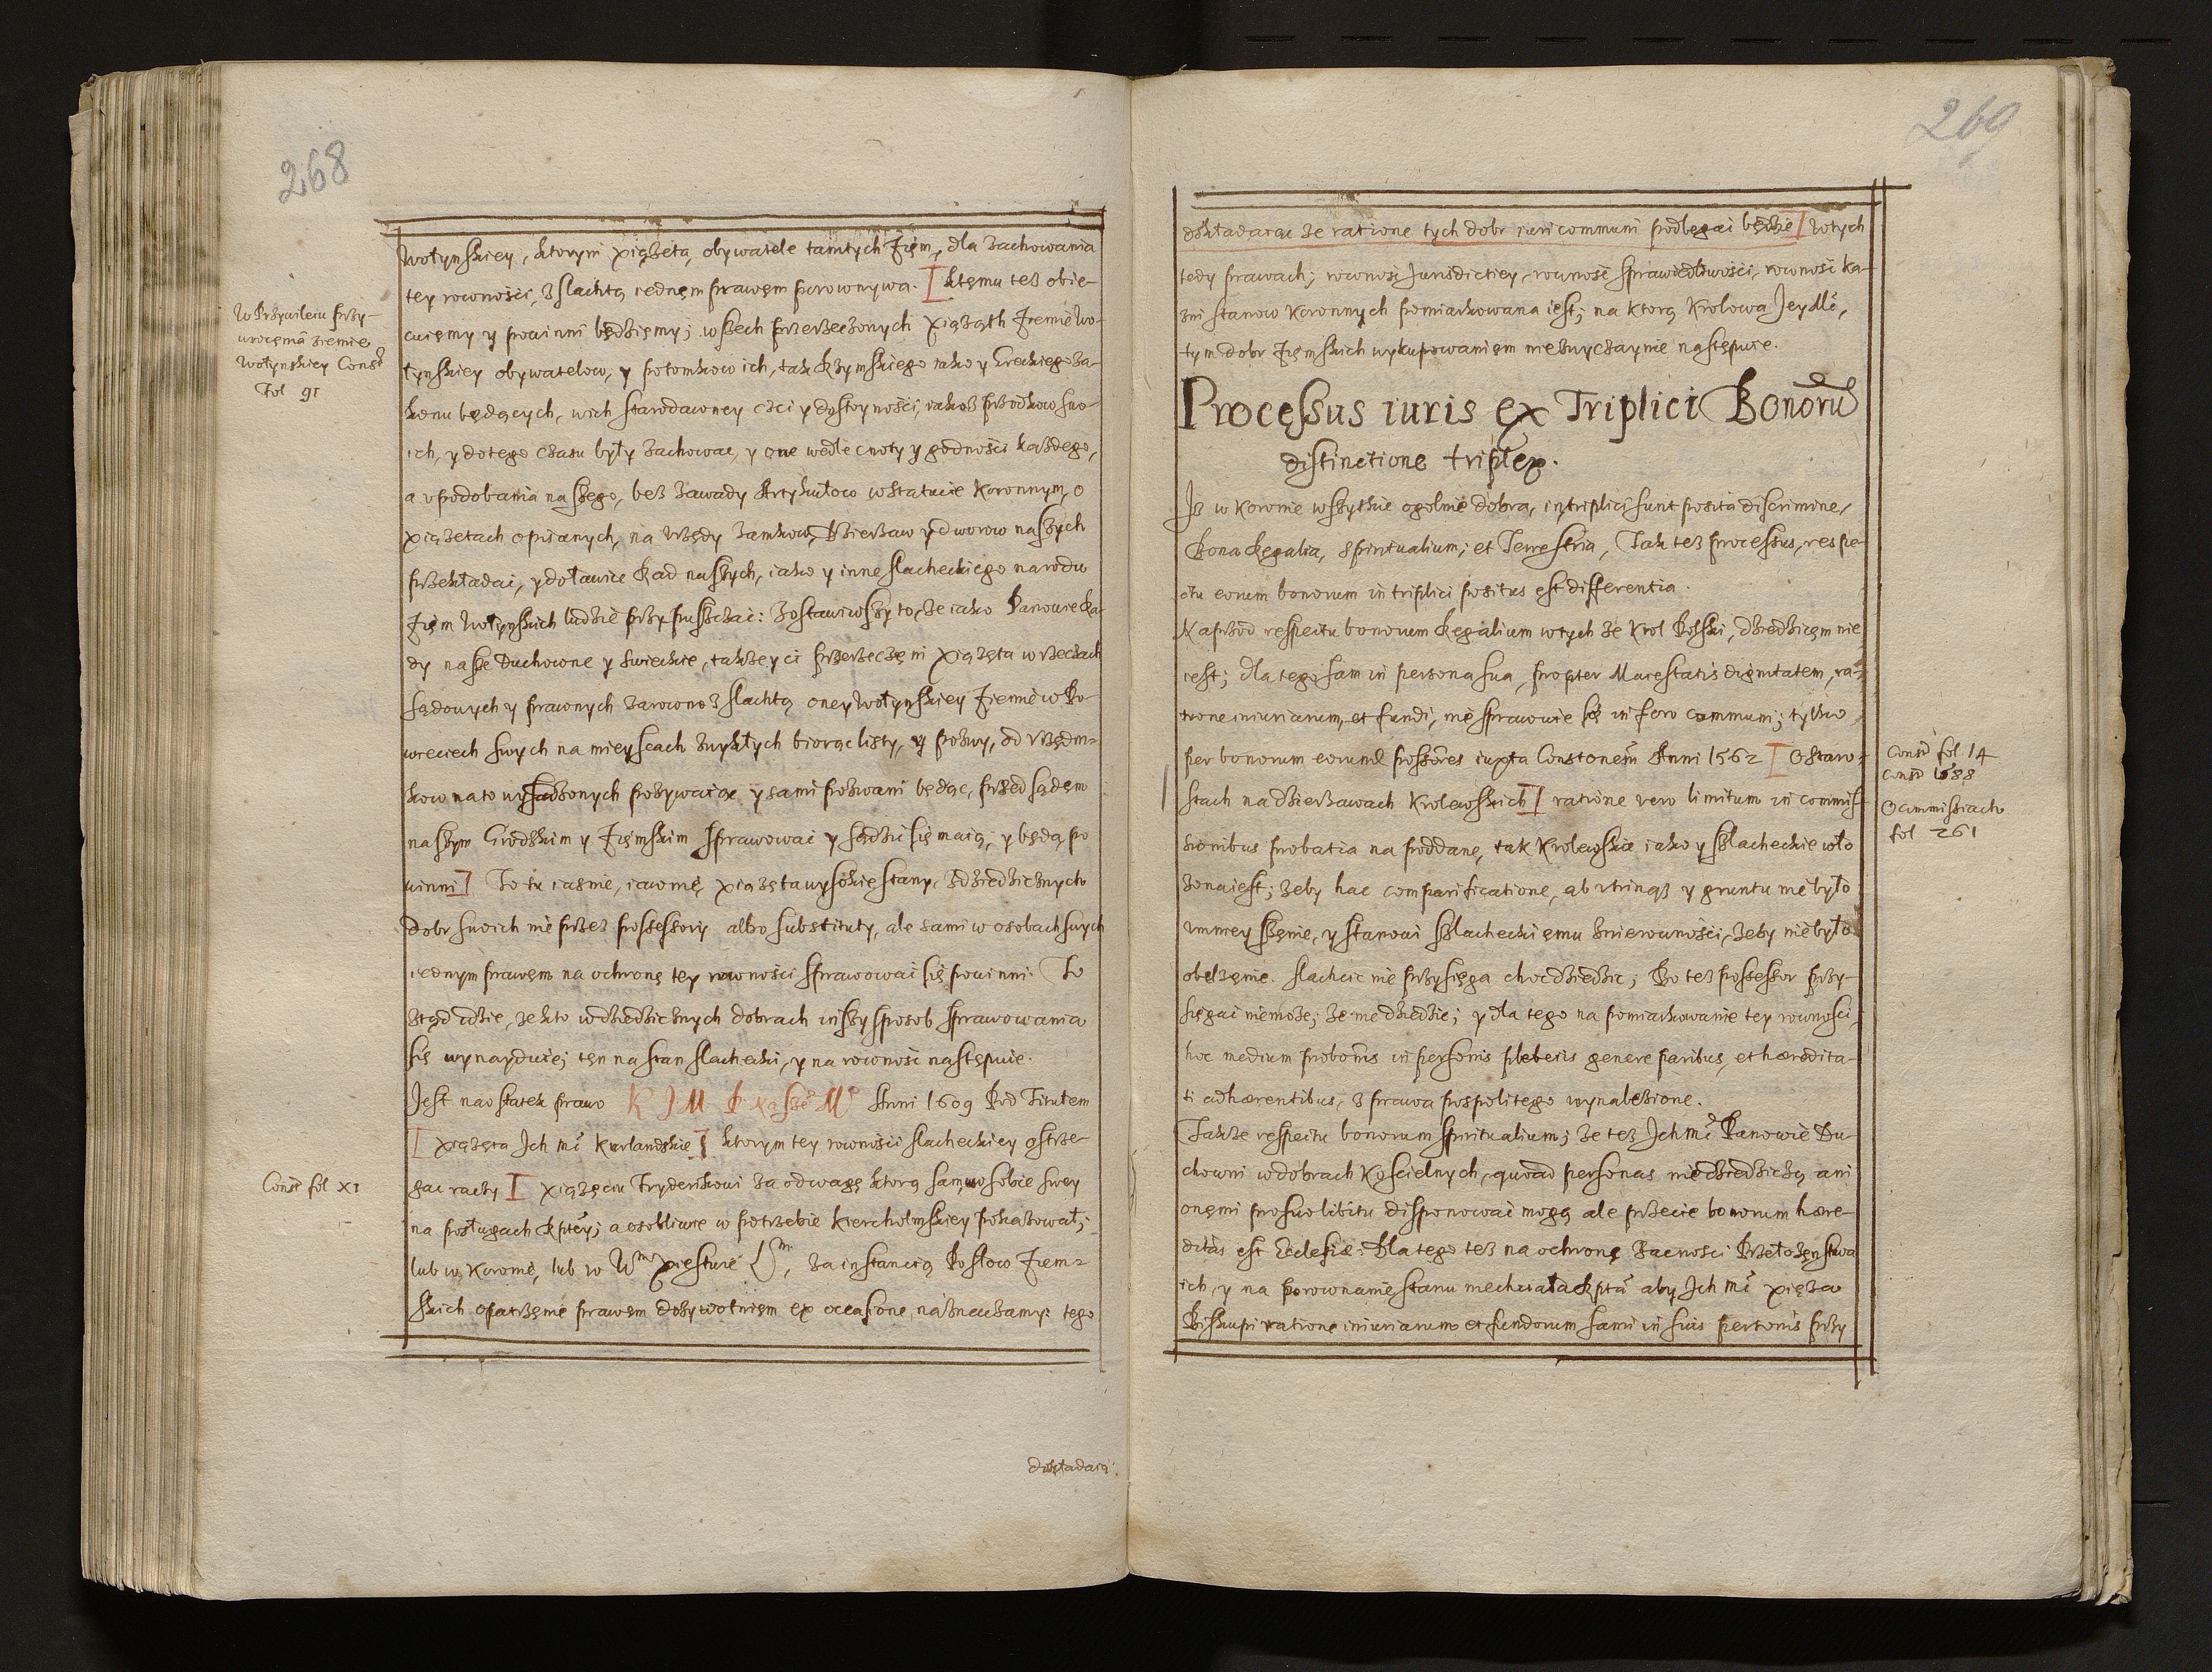 268
Wołynskiey, ktorym xiążęta, obywatele tamtych Zięm, dla zachowania
tey rownosci, z slachtą iednęm prawęm porownywa. [ktęmu tesz obie-
W Przywileiu przy-
wrocęniã ziemie
Wołynskiey Const
Fol 91
cuięmy y powinni będzięmy; wszech przerzeczonych xiążąth Ziemie Wo-
łynskiey obywatelow, y potomkow ich, tak Rzymskiego iako y Greckiego za-
konu będących, wich starodawney czci y dostoyności, iakosz przodkow swo-
ich, y dotego czasu były zachować, y one wedle cnoty y godności każdego,
a upodobania naszego, bez zawady Artykułow wstatucie Koronnym, o
xiążetach opisanych, na urzędy zamkow, Dzierżaw y dworow naszych
przekładać, y doławice Rad naszych, iako y inne slacheckiego narodu
Zięm Wołynskich ludzie przypuszczać: zostawiwszy to, że iako Panowie Ra-
dy nasze Duchowne y swieckie, także y ci przerzeczęni xiążęta w rzeczach
sądowych y prawnych zarowno z slachtą oney Wołynskiey Ziemie w Po-
wieciech swych na mieyscach zwykłych biorąc listy, y pozwy, od Urzędni-
kow na to wysadzonych pozywaiąc y sami pozwani będąc, przed sądęm
naszym Grodzkim y Zięmskim sprawować y sądzić się maią, y będą po
winni] To tu iasnie, iawnię, xiążęta wysokię stany, z dziedzicznych
dobr swoich nie przez possessory albo substituty, ale sami w osobach swych
iednym prawęm na ochronę tey rowności sprawować się powinni. To
ztąd idzie, że kto w dziedzicznych dobrach inszy sposob sprawowania
się wynayduie; tęn na stan slachecki, y na rowność następuie.
Jest naostatek prawo K J M P. Naszeo Mo Anni 1609 Pod Titułem
[xiążęta Ich mć Kurlandskie] ktorym tey rowności slacheckiey ostrze-
Const fol XI
gać raczy [xiążęciu Fryderikowi za odwagę ktorą sam w sobie swey
na posługach Rptey; a osobliwie w potrzebie Kiercholmskiey pokazował;
lub w Koronie, lub w Wm xięstwie Lm, za instancią Posłow Ziem-
skich opatrzęnie prawęm dożywotnięm ex occasione, naznaczamy: tego
dokładaiąc
269
dokładaiąc że ratione tych dobr iuri communi podlegać będzie] W tych
tedy sprawach; rowność Jurisdictiey, rowność sprawiedliwości, rowność ka-
zni stanow Koronnych pomiarkowana iest; na ktorą Krolowa Jey
tym dobr Zięmskich wykupowanięm niezwyczaynie następuie.
Processus iuris ex Triplici Bonorū
distinctione triplex.
Iż w Koronie wszytkie ogolnie dobra, in triplici sunt posita discrimine,
Bona Regalia, spiritualium; et Terrestria, Tak tesz processus, respe-
ctu eorum bonorum in triplici positus est differentia.
Naprzod respectu bonorum Regalium w tych że Krol Polski, dziedzicęm nie
iest; dla tego sam in persona sua, propter Maiestatis dignitatem, ra-
tione iniuriarum, et fundi, nie sprawuie się in foro communi; tylko
per bonorum eorund possores iuxta Constonem Anni 1562 [O staro-
Const fol 14
Const 1588
stach na dzierżawach Krolewskich] ratione vero limitum in commis-
O commissiach
fol 261
sionibus probatia na poddane, tak Krolewskie iako y szlacheckie wło
żona iest; żeby hac comparificatione, ab utrinqz y gruntu nie było
umnieyszęnie, y stanowi szlacheckięmu znierowności, żeby nie było
obelżęnie. slachcic nie przysięga choc dziedzic; Bo tesz possessor przy-
sięgać nie może; że nie dziedzic; y dla tego na pomiarkowanie tey rowności,
hoc medium probonis in personis plebeiis genere paribus, et haeredita-
ti adhaerentibus, z prawa pospolitego wynalezione.
Także respectu bonorum spiritualium; że tesz Ich mć Panowie Du-
chowni w dobrach Kościelnych, quoad personas nie dziedziczą ani
onęmi pro suo libitu disponować mogą ale przecie bonorum haere-
ditas est Ecclesiae: Dla tego tesz na ochronę zacności Przełożęnstwa
ich, y na porownanie stanu niechciała Rptā aby Ich mć xięża
Biskupi ratione iniuriarum et fundorum sami in suis personis przy